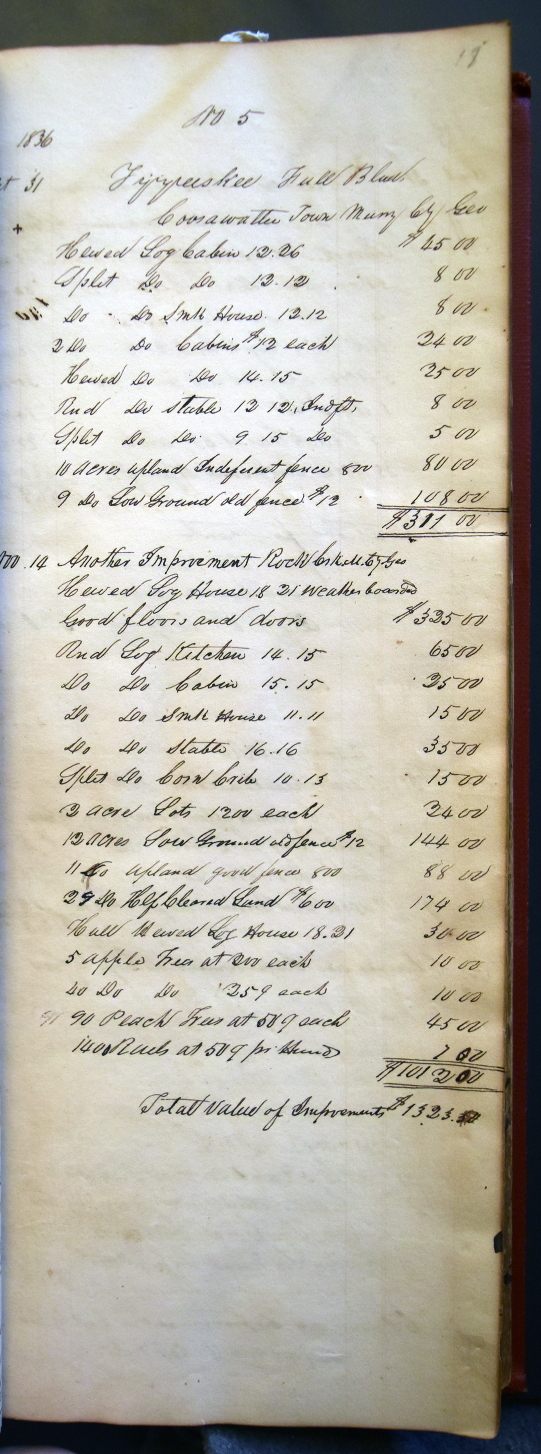 19
No 5
1836
31 Full Blood
Coosawattee Town Murry Cty Geo
Hewed Log Cabin 12.26 $45 00
Split Do Do 12.12 8 00
Do Do Smk House 12.12 8 00
2 Do Do Cabins $12 each 24 00
Hewed Do Do 14.15 25 00
Rnd Do Stable 12 12. Indft. 8 00
Split Do Do 9 15 Do 5 00
10 acres upland Indeferent fence 800 80 00
9 Do Low Ground old fence $12 108 00
$311 00
14 Another Improvement Rock Crk M. Cty Geo
Hewed Log House 18 21 weatherboarded
Good floors and doors $325 00
Rnd Log Kitchen 14.15 65 00
Do Do Cabin 15.15 25 00
Do Do Smk House 11.11 15 00
Do Do Stable 16.16 35 00
Split Do Corn Crib 10.13 15 00
2 acre Lots 1200 each 24 00
12 acres Low Ground old fence $12 144 00
11 Do upland good fence 800 88 00
29 Do Hlf Cleared Land $600 174 00
Hull Hewed Log House 18.21 30.00
5 apple Trees at 200 each 10 00
40 Do Do 25¢ each 10 00
90 Peach Trees at 50¢ each 45 00
1400 Rails at 50¢ pr Hund 7 00
$1012 00
Total Value of Improvements $1323.00